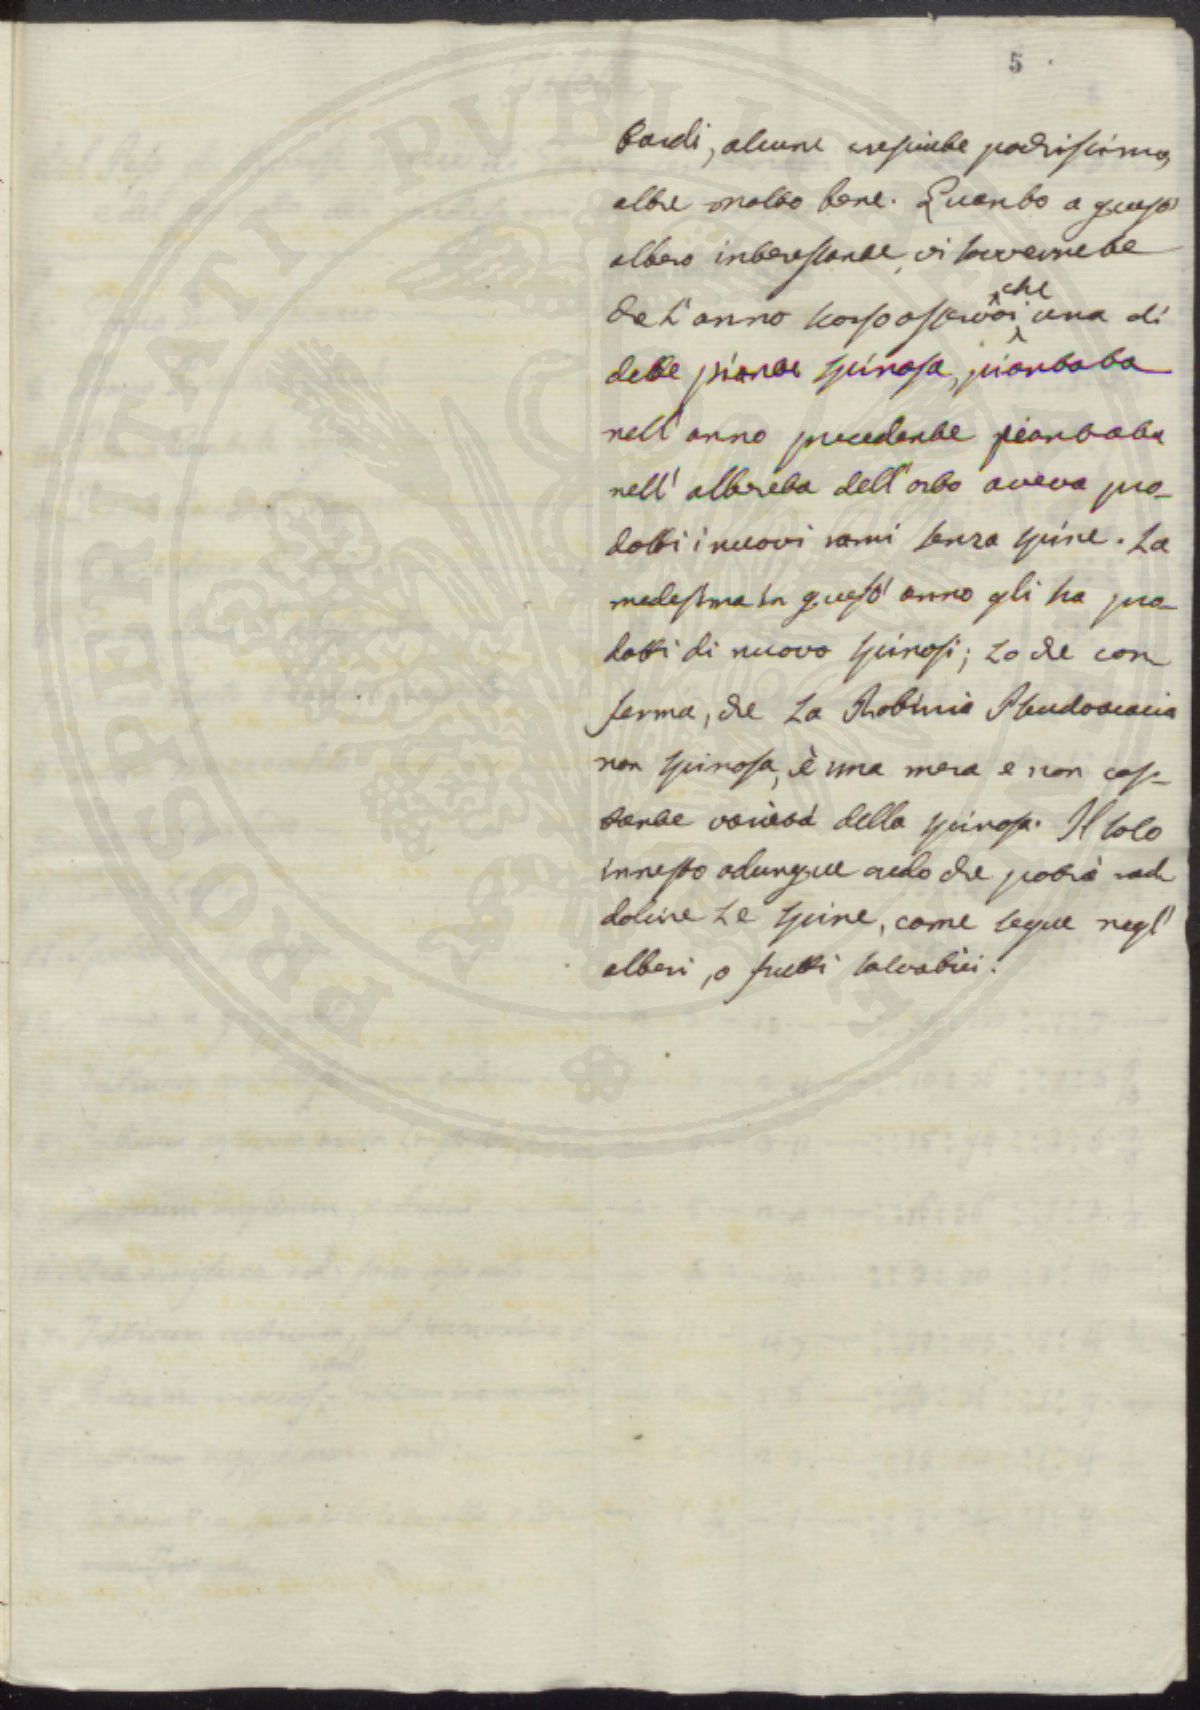 5
tardi, alcune cresciute pochissimo,
altre molto bene. Quanto a quest'
albero interessante, vi sovverrete
che l'anno scorso osservai che una di
dette piante spinosa, piantata
nell'anno precedente piantata
nell'albereta dell'orto aveva pro-
dotti i nuovi rami senza spine. La
medesima in quest'anno gli ha pro-
dotti di nuovo spinosi; Lo che con
ferma, che La Robinia Pseudoacacia
non spinosa, è una mera e non cos-
tante varietà della spinosa. Il solo
innesto adunque credo che potrà rad
dolcire Le spine, come segue negl'
alberi, o frutti salvatici.
PROSPERITATI PUBLICAE